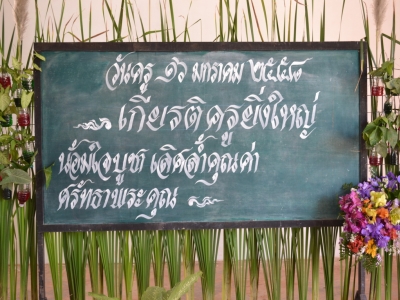 วันครู ๑๖ มกราคม ๒๕๕๘
เกียรติครูยิ่งใหญ่
น้อมใจบูชา เลิศล้ำคุณค่า
ศรัทธาพระคุณ